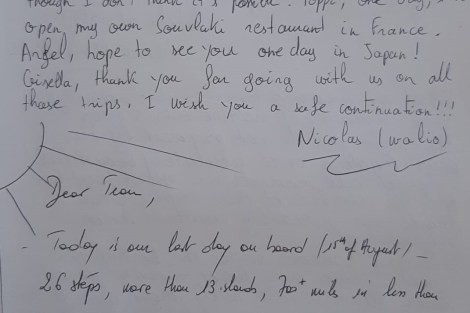 though I don't think it's possible. Poppi, one day, I'll
open my own Souvlaki restaurant in France.
Angel, hope to see you one day in Japan!
Gisella, thank you for going with us on all
those trips. I wish you a safe continuation!!!
Nicolas (walis)
Dear Team,
- Today is our last day on board (15th of August) -
26 steps, more than 13 islands, 700+ miles in less than